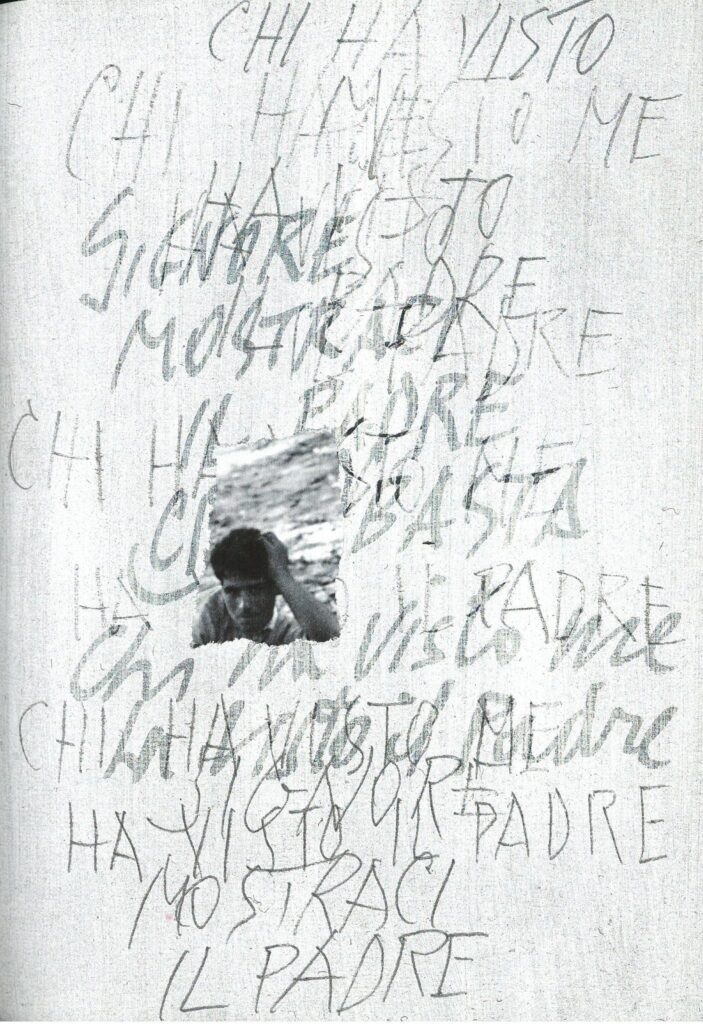 CHI HA VISTO
CHI HA VISTO ME
HA VISTO
SIGNORE
PADRE
MOSTRACI
PADRE
IL PADRE
CHI HA
CI BASTA
HA IL PADRE
Chi ha visto me
CHI HA VISTO ME
ha visto il Padre
SIGNORE
HA VISTO IL PADRE
MOSTRACI
IL PADRE